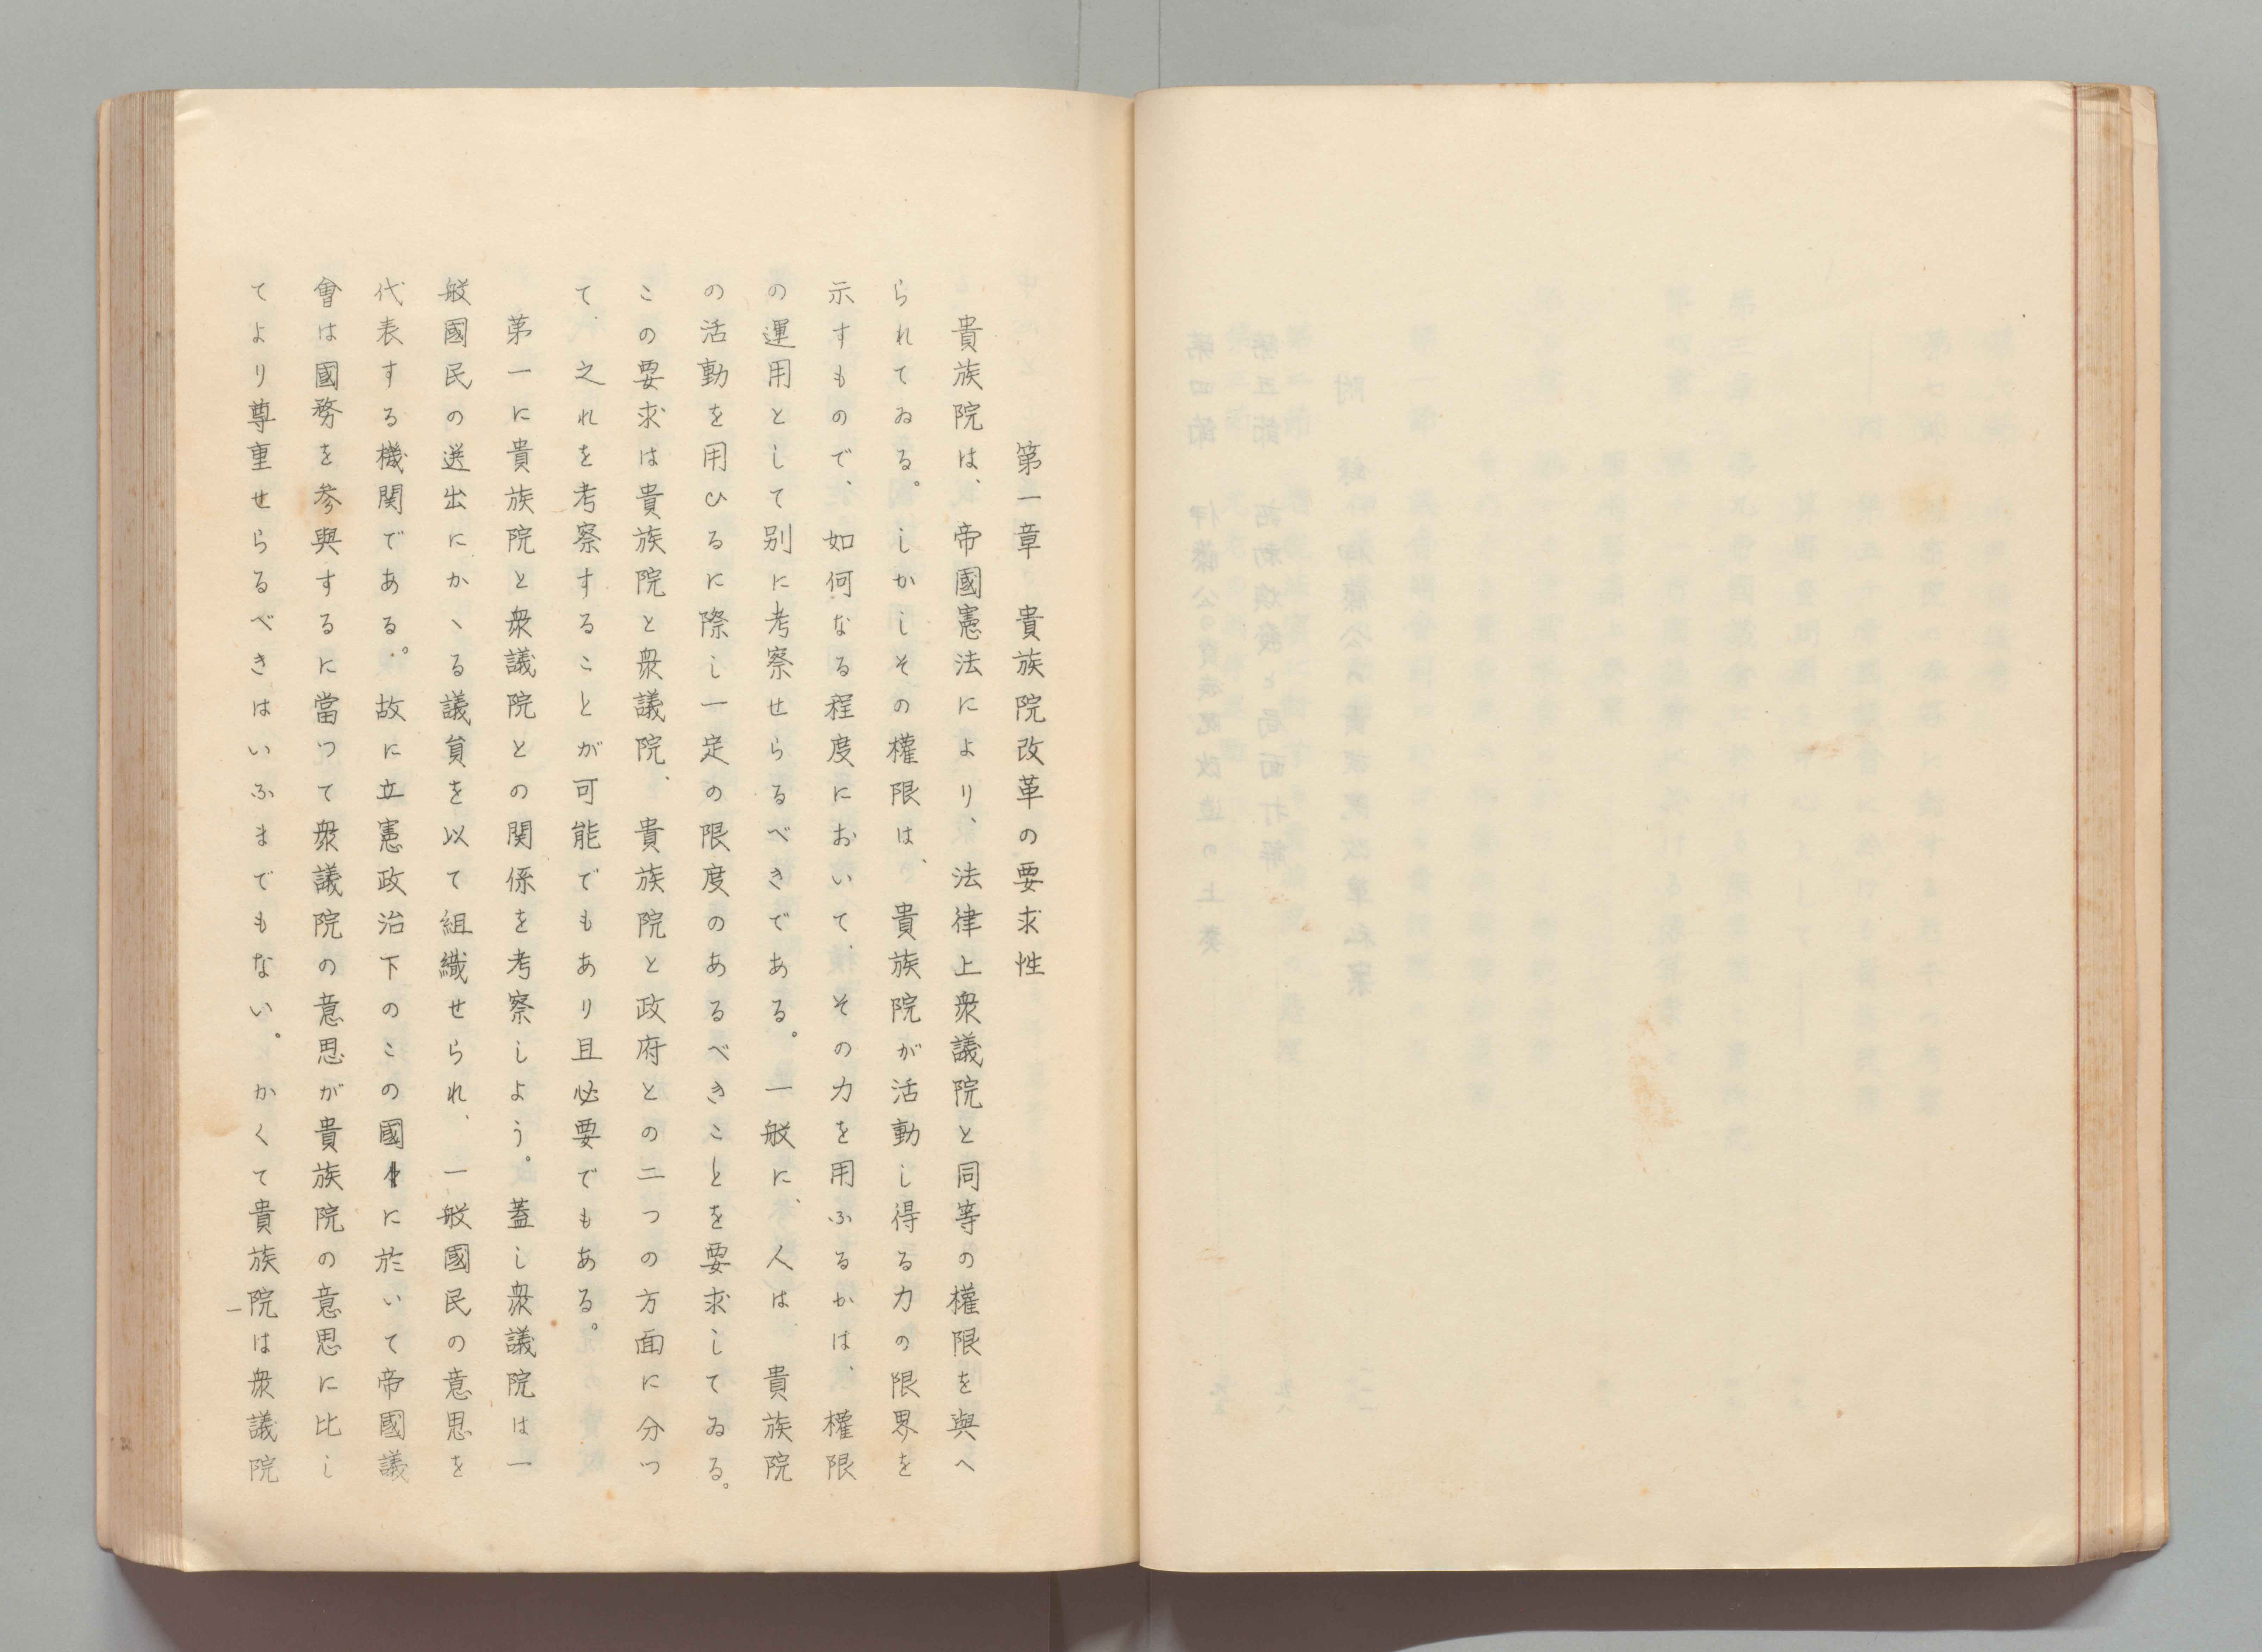 第一章　貴族院改革の要求性
貴族院は、帝國憲法により、法律上衆議院と同等の權限を與へ
られてゐる。しかしその權限は、貴族院が活動し得る力の限界を
示すもので、如何なる程度において、その力を用ふるかは、權限
の運用として別に考察せらるべきである。一般に、人は、貴族院
の活動を用ひるに際し一定の限度のあるべきことを要求してゐる。
この要求は貴族院と衆議院、貴族院と政府との二つの方面に分つ
て、之れを考察することが可能でもあり且必要でもある。
第一に貴族院と衆議院との関係を考察しよう。蓋し衆議院は一
般國民の送出にかゝる議員を以て組織せられ、一般國民の意思を
代表する機関である。故に立憲政治下のこの國に於いて帝國議
會は國務を参與するに當つて衆議院の意思が貴族院の意思に比し
てより尊重せらるべきはいふまでもない。かくて貴族院は衆議院
一